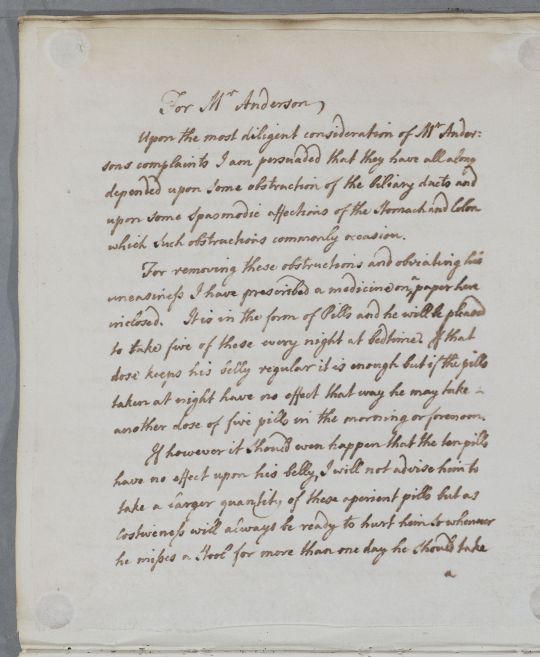 For Mr Anderson,
Upon the most diligent consideration of Mr Ander:
sons complaints I am persuaded that they have all along
depended upon some obstruction of the biliary ducts and
upon some spasmodic affections of the Stomach and Colon
which such obstructions commonly occasion.
For removing these obstructions and obviating his
uneasiness I have prescribed a medicine on a paper here
inclosed. It is in the form of Pills and he will be pleased
to take five of these every night at bedtime. If that
dose keeps his belly regular it is enough but if the pills
taken at night have no effect that way he may take
another dose of five pills in the morning or forenoon.
If however it should even happen that the ten pills
have no effect upon his belly, I will not advise him to
take a larger quantity of these aperient pills but as
Costiveness will always be ready to hurt him so whenever
he misses a Stool for more than one day he should take
a